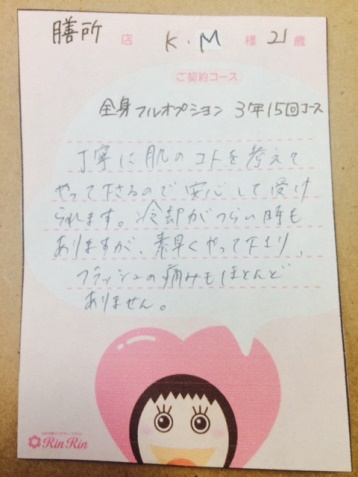 膳所 店 K.M 様 21 歳
ご契約コース
全身フルオプション 3年15回コース
丁寧に肌のコトを考えて
やって下さるので安心して受け
られます。冷却がつらい時も
ありますが、素早くやって下さり、
フラッシュの痛みもほとんど
ありません。
RinRin